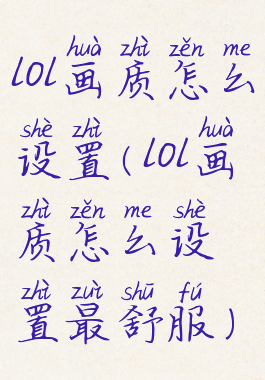 huà zhì zěn me
lol画质怎么
shè zhì huà
设置(lol画
zhì zěn me shè
质怎么设
zhì zuì shū fú
置最舒服)